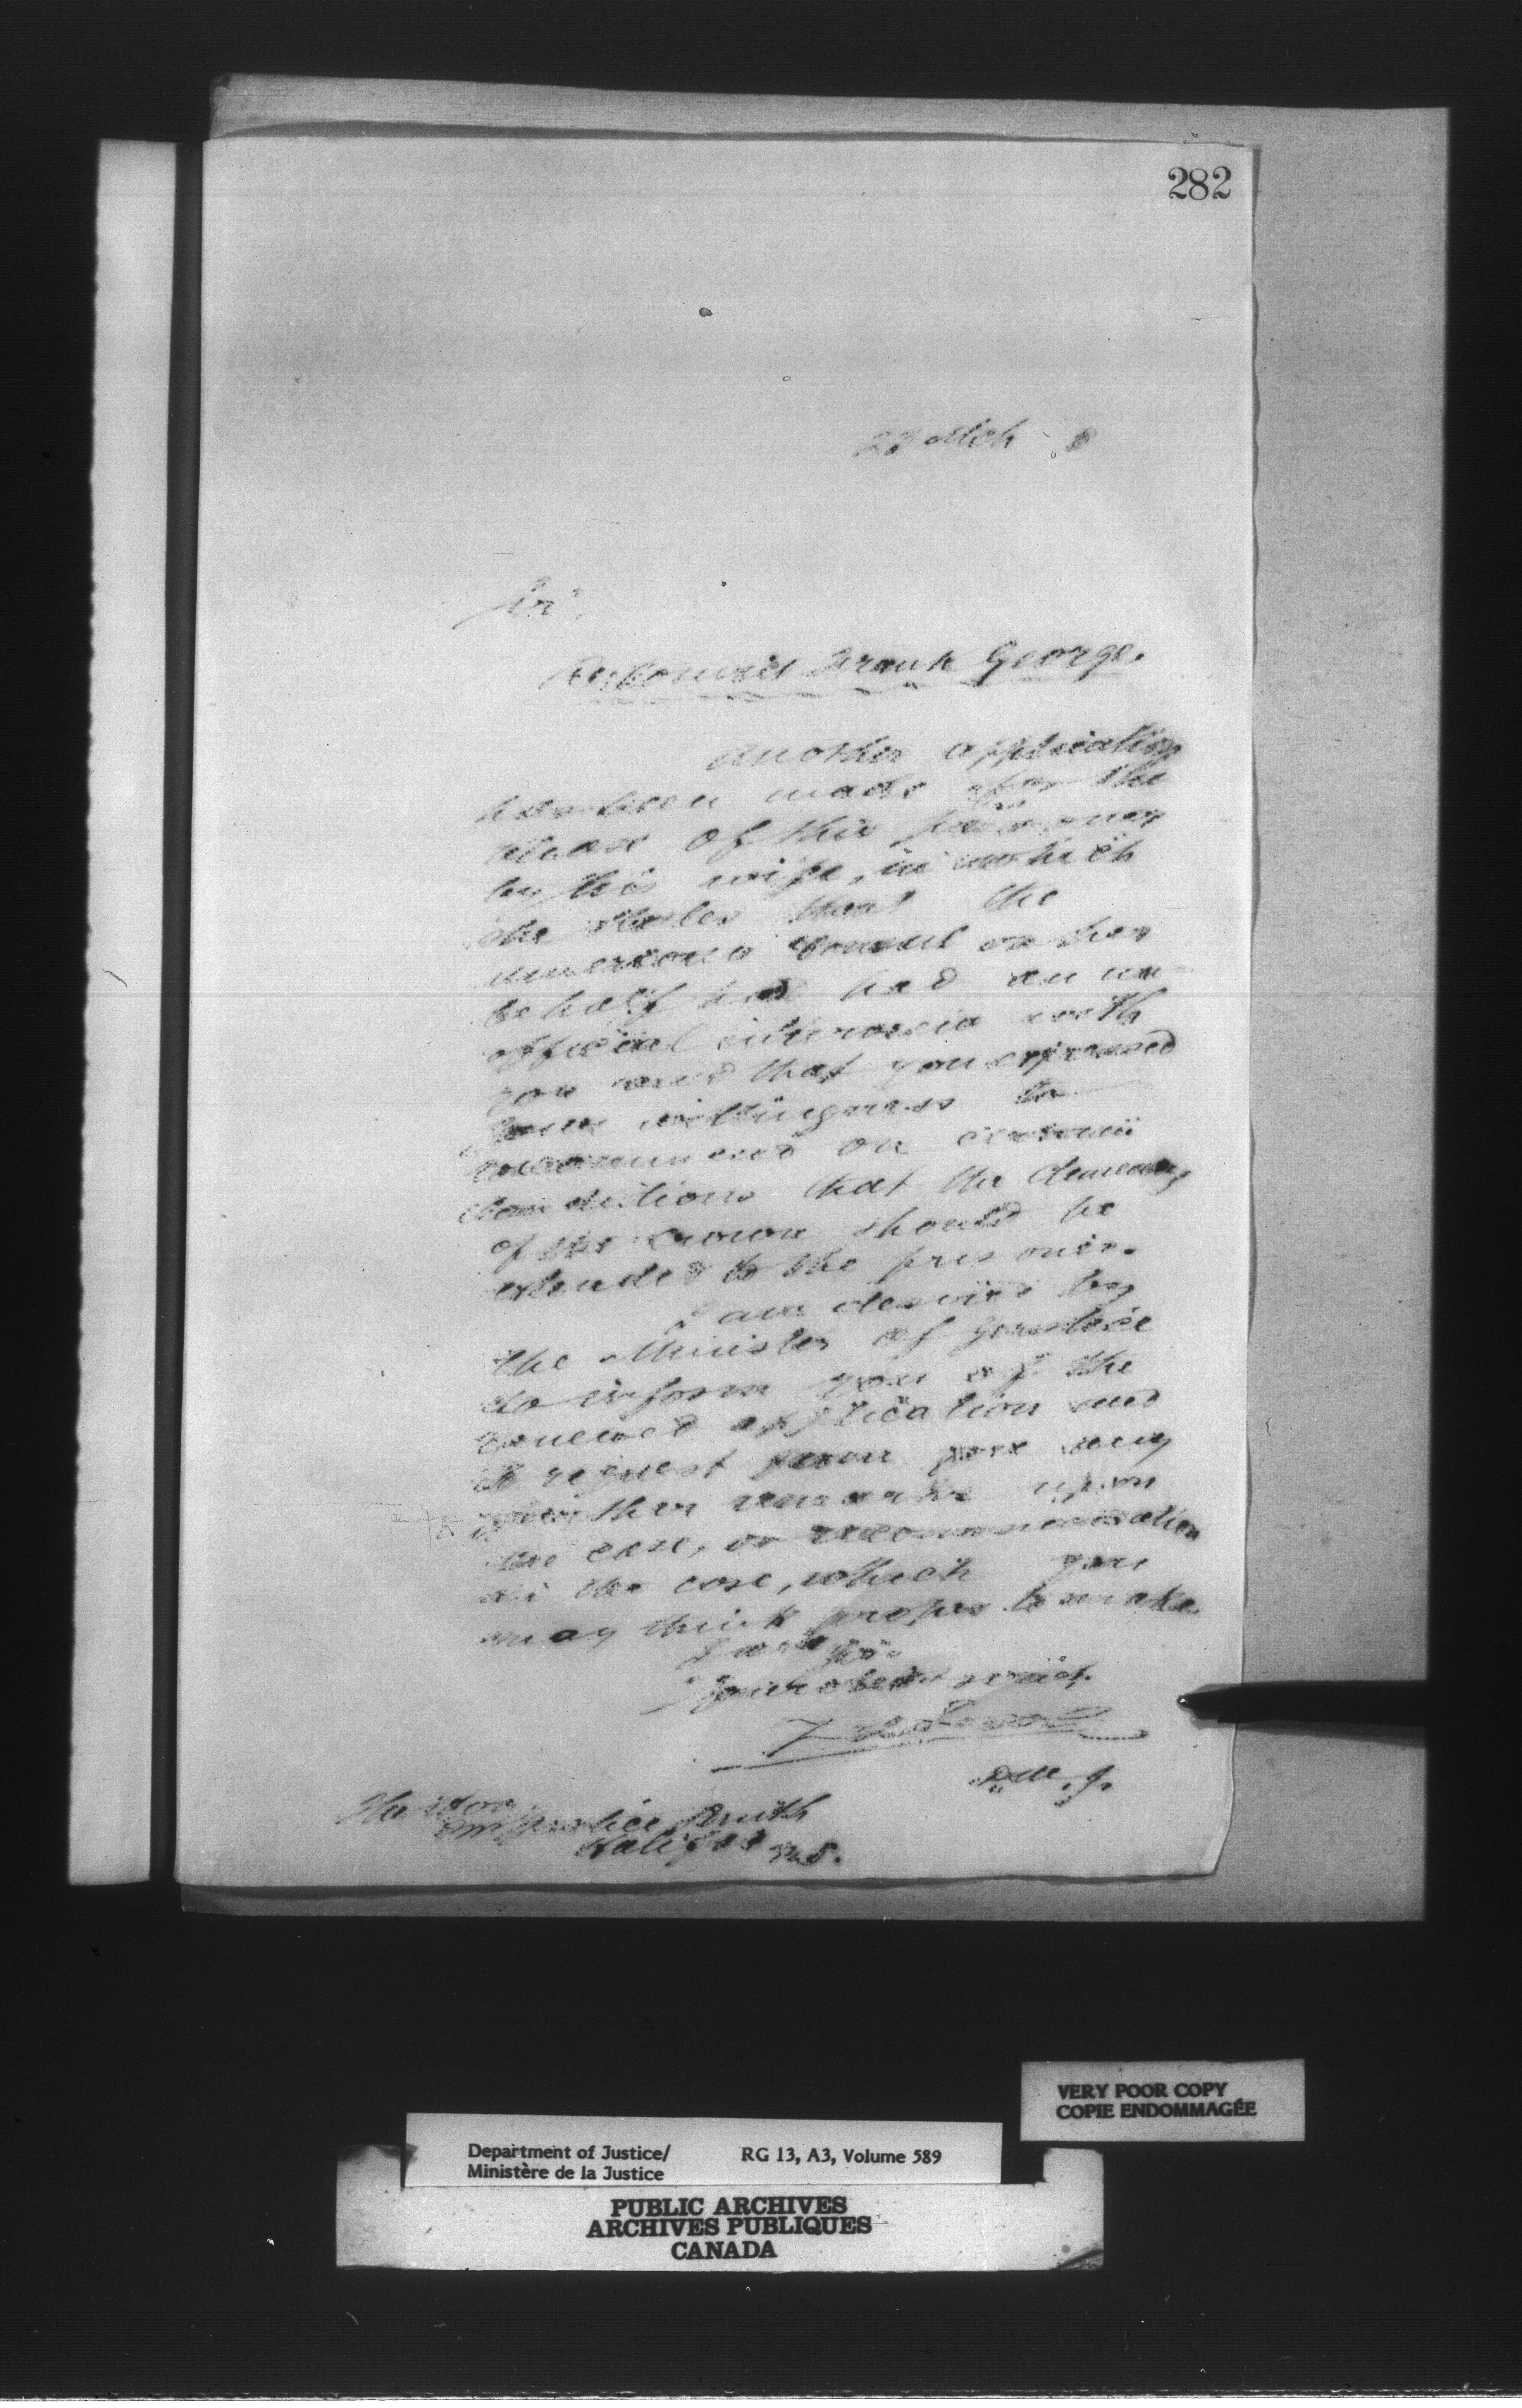 282
Mch 8
Sir,
Frank George.
Another application
has been made for the
release of this prisoner
by his wife, in which
she states that the
American Consul on her
behalf had had an un
official interview with
you and that you expressed
your willingness to
recommend on certain
conditions that the clemency
of the Crown should be
extended to the prisoner.
I am desired by
the Minister of Justice
to inform you of the
renewed application and
to request from you any
further remarks upon
the case, or recommendation
in the case, which you
may think proper to make.
I am Sir
Your obedt servt.
D.M.J.
The Hon
Justice Smith
Halifax N.S.
VERY POOR COPY
COPIE ENDOMMAGÉE
Department of Justice/ RG 13, A3, Volume 589
Ministère de la Justice
PUBLIC ARCHIVES
ARCHIVES PUBLIQUES
CANADA